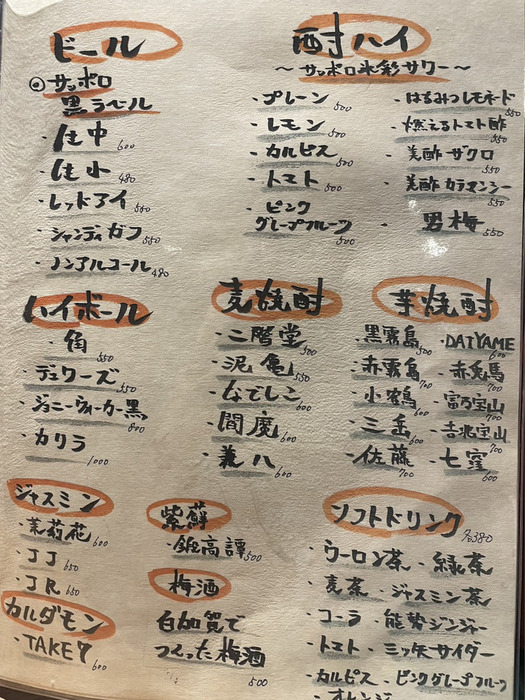 ビール
◎サッポロ
黒ラベル
・生中 600
・生小 480
・レッドアイ 550
・シャンディガフ 550
・ノンアルコール 480
酎ハイ
〜サッポロ氷彩サワー〜
・プレーン 500
・レモン 500
・カルピス 500
・トマト 500
・ピンク
グレープフルーツ 500
・はちみつレモネード 550
・燃えるトマト酢 550
・美酢ザクロ 550
・美酢カラマンシー 550
・男梅 550
ハイボール
・角 550
・デュワーズ 550
・ジョニーウォーカー黒 800
・カリラ 1000
麦焼酎
・二階堂 500
・泥亀 550
・なでしこ 600
・閻魔 600
・兼八 600
芋焼酎
・黒霧島 500
・赤霧島 700
・小鶴 600
・三岳 600
・佐藤 700
・DAIYAME 600
・赤兎馬 700
・富乃宝山 700
・吉兆宝山 700
・七窪 600
ジャスミン
・茉莉花 600
・JJ 650
・JR 650
カルダモン
・TAKE7 600
紫蘇
・鍛高譚 500
梅酒
白加賀で
つくった梅酒 500
ソフトドリンク
380
・ウーロン茶・緑茶
・麦茶・ジャスミン茶
・コーラ・能勢ジンジャー
・トマト・三ッ矢サイダー
・カルピス・ピンクグレープフルーツ
・オレンジ